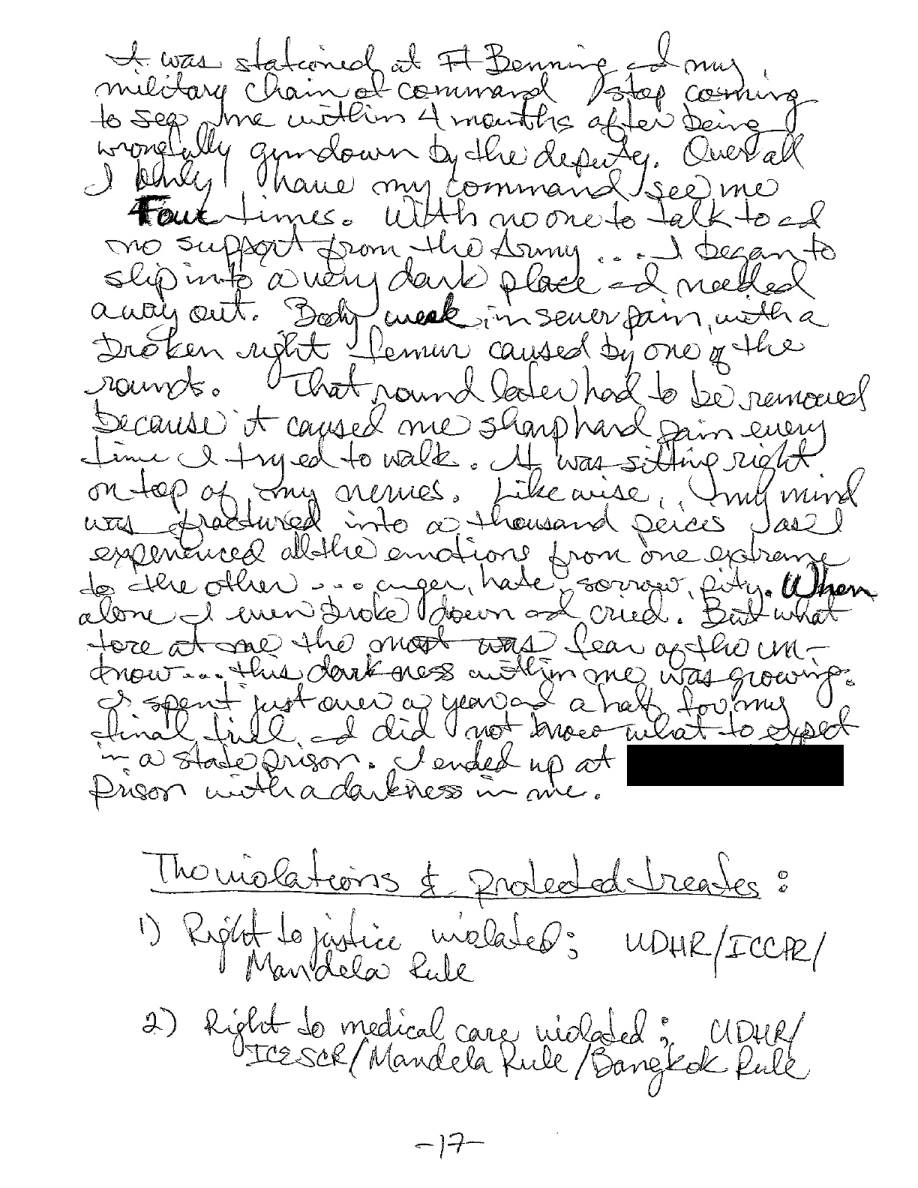 I was stationed at Ft Benning and my
military chain of command stop coming
to see me within 4 months after being
wrongfully gundown by the deputy. Over all
I only have my command see me
Four times. With no one to talk to and
no support from the Army .... I began to
slip into a very dark place and needed
away out. Body weak, in sever pain, with a
broken right femur caused by one of the
rounds. That round later had to be removed
because it caused me sharp hard pain every
time I tryed to walk. It was sitting right
on top of my nerves. Likewise, my mind
was fractured into a thousand peices as I
experienced all the emotions from one extreme
to the other ... anger, hate, sorrow, pity. When
alone I even broke down and cried. But what
tore at me the most was fear of the un-
know... this darkness within me was growing.
I spent just over a year and a half for my
final trill, and did not know what to expect
in a state prison. I ended up at
prison with a darkness in me.
The violations & protected treates:
1) Right to justice violated; UDHR/ICCPR/
Mandela Rule
2) Right to medical care violated; UDHR/
ICESCR/Mandela Rule/Bangkok Rule
-17-